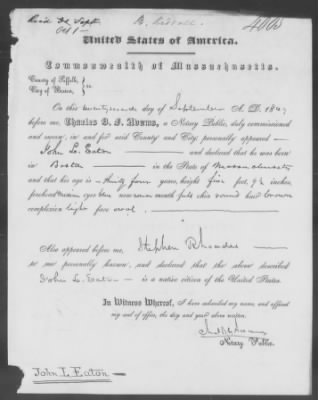 Recd 22 Sept
4000
United States of America.
Commonwealth of Massachusetts.
County of Suffolk,
City of Boston, } ss
On this twenty second day of September A. D. 184
before me, Charles B. F. Adams, a Notary Public, duly commissioned
and sworn, in and for said County and City, personally appeared
John L. Eaton and declared that he was born
in Boston in the State of Massachusetts
and that his age is thirty four years, height five feet, 9½ inches,
forehead eyes blue nose mouth full chin round hair brown
complexion light face oval.
Also appeared before me, Stephen Rhoades
to me personally known, and declared that the above described
John L. Eaton is a native citizen of the United States.
In Witness Whereof, I have subscribed my name, and affixed
my seal of office, the day and year above written.
Notary Public.
John L. Eaton